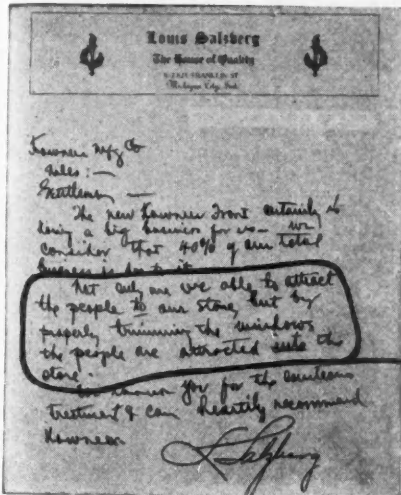 Louis Salzberg
The House of Quality
FRANKLIN ST
Michigan City, Ind.
Kawneer Mfg Co
Niles :—
Gentlemen —
The new Kawneer Front certainly is
doing a big business for us — we
consider that 40% of our total
business is due to it.
Not only are we able to attract
the people to our store, but by
properly trimming the windows
the people are attracted into the
store.
you for the courteous
treatment & can heartily recommend
Kawneer
L Salzberg